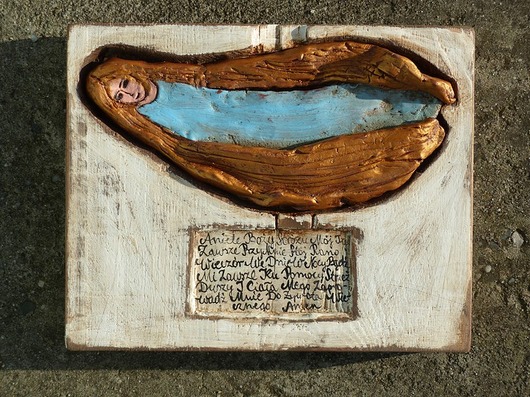 Aniele Boży Stróżu Mój Ty
Zawsze Przy Mnie Stój Rano
Wieczór We Dnie W Nocy Bądź
Mi Zawsze Ku Pomocy Strzeż
Duszy I Ciała Mego Zapro-
wadź Mnie Do Żywota Wie-
cznego Amen